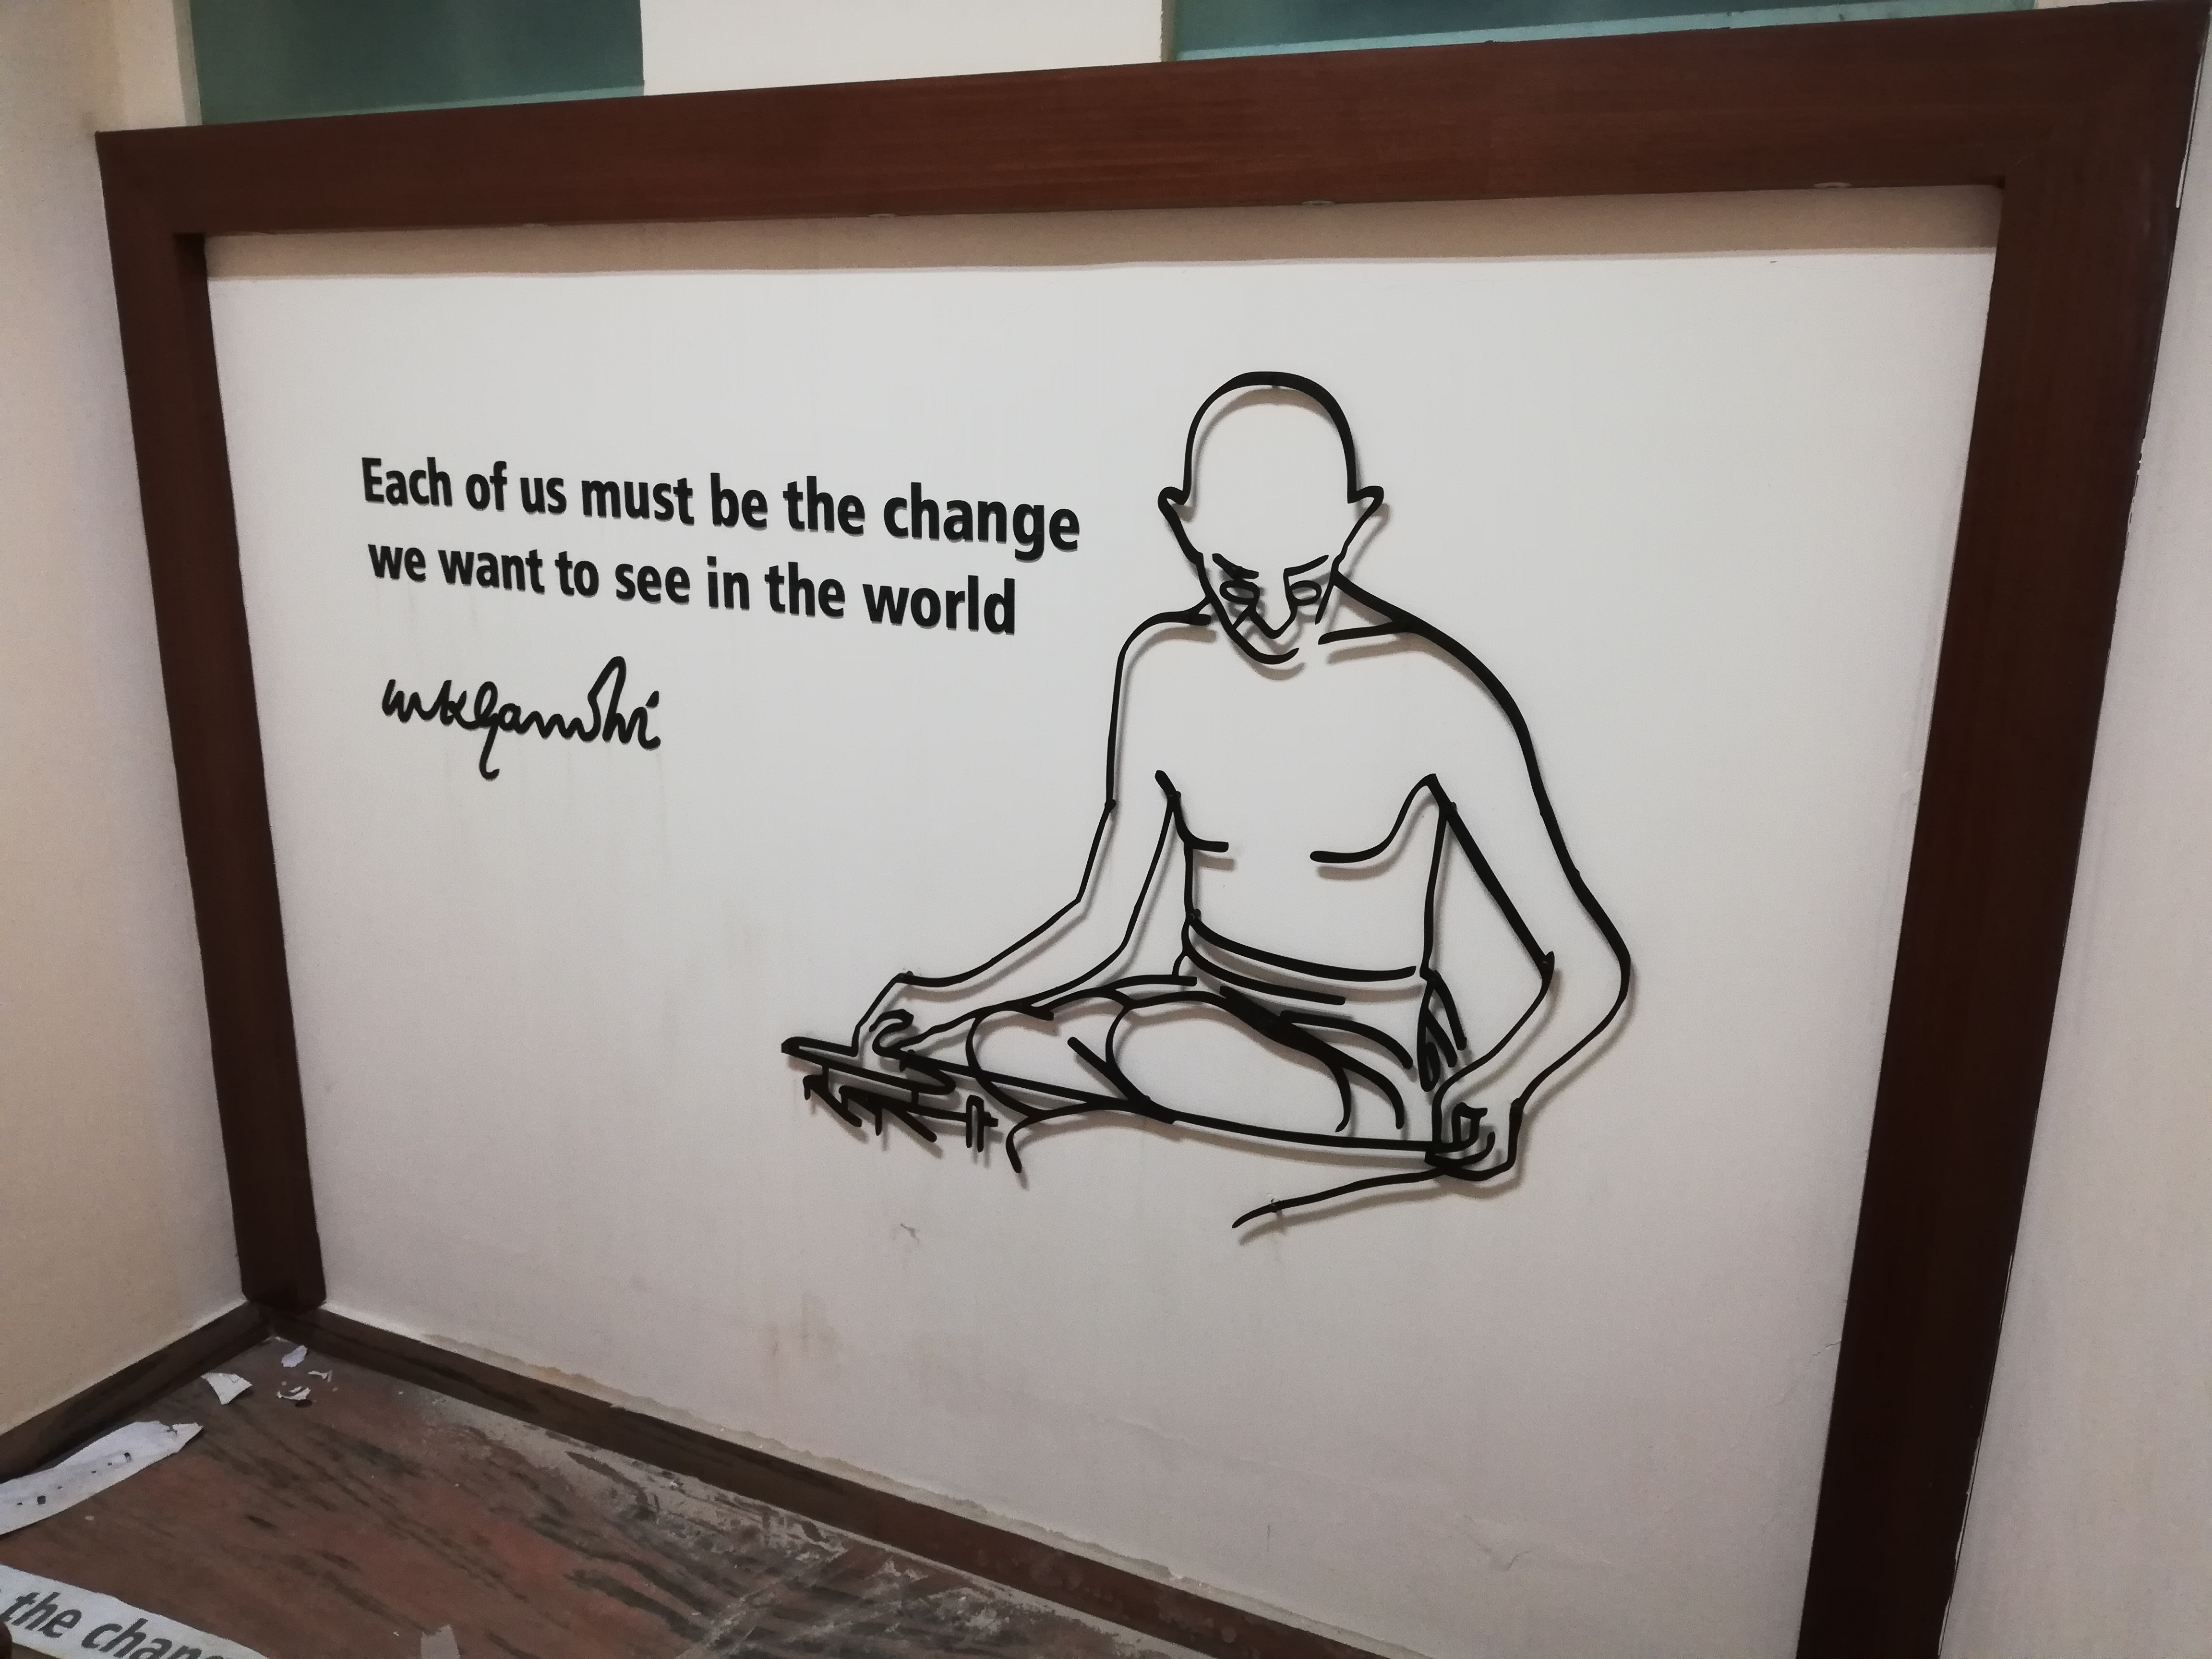 Each of us must be the change
we want to see in the world
mkgandhi
the chang